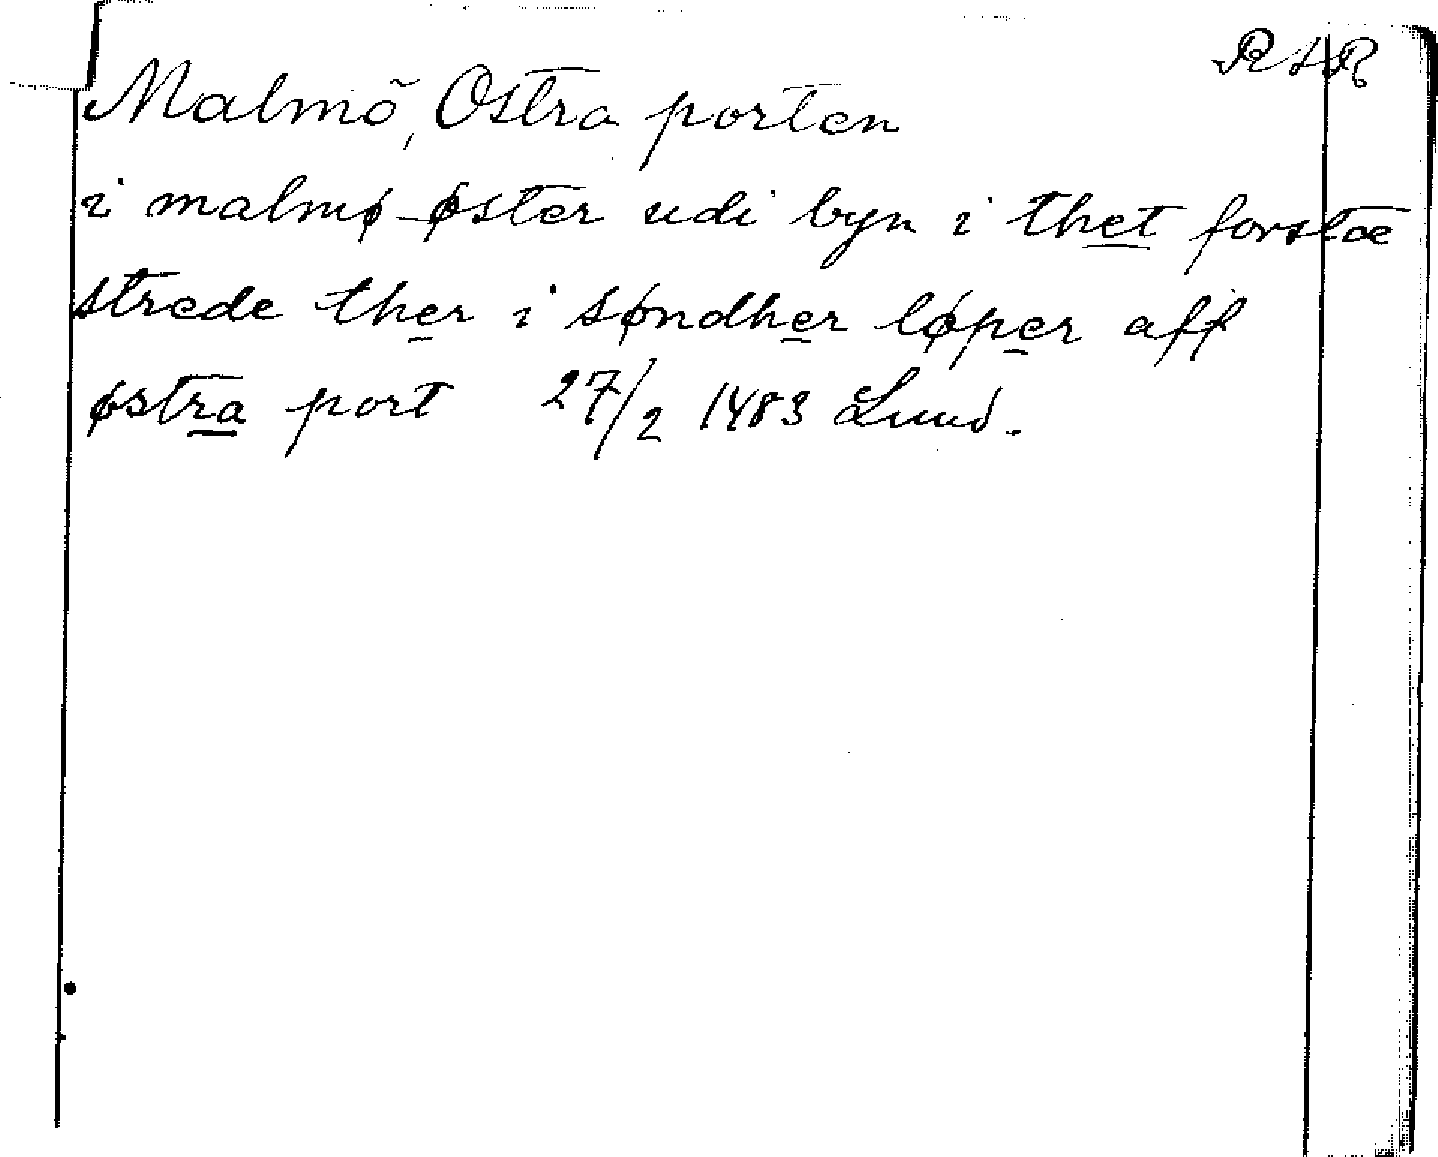 R L R
Malmö, Östra porten
i malmø øster udi byn i thet forstæ
strede ther i søndher løper aff
østra port 27/2 1483 Lund.